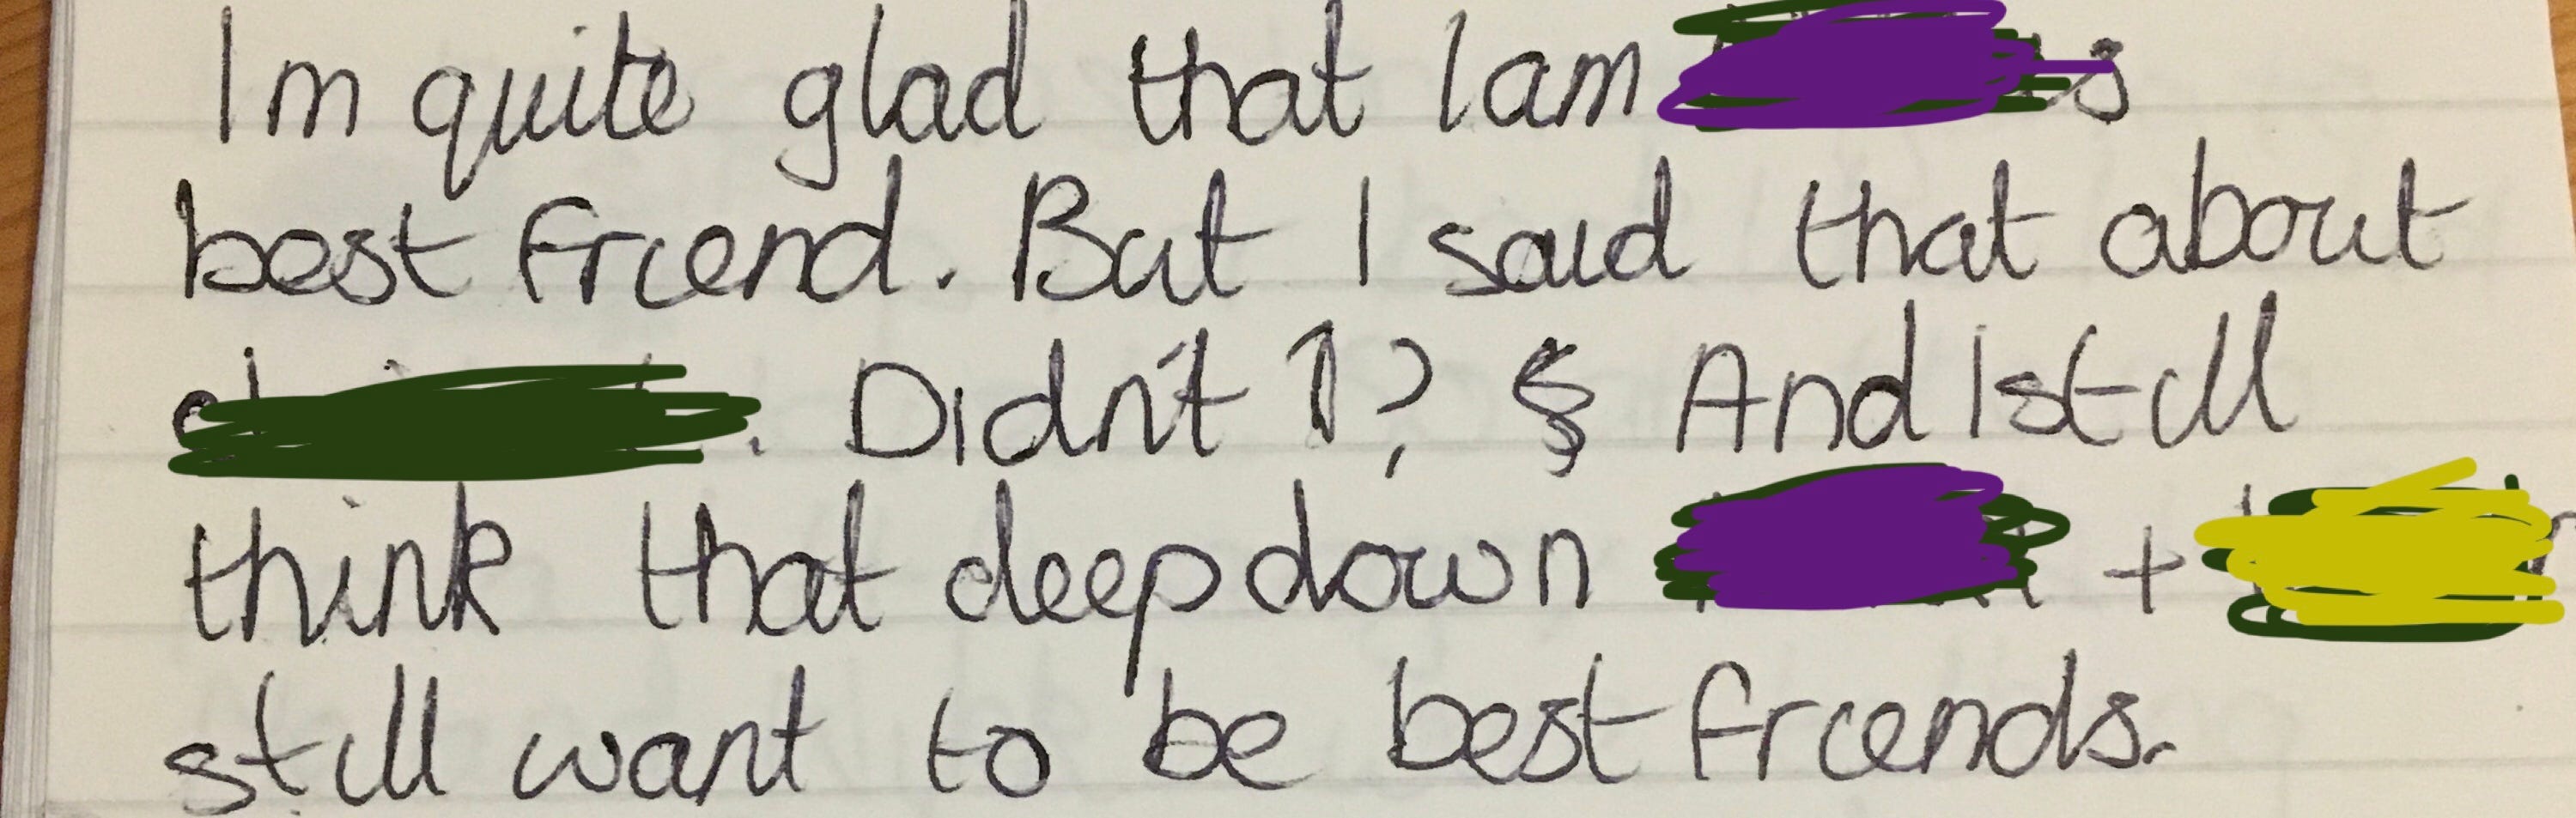 Im quite glad that I am
best friend. But I said that about
Didn't I? And I still
think that deep down +
still want to be best friends.